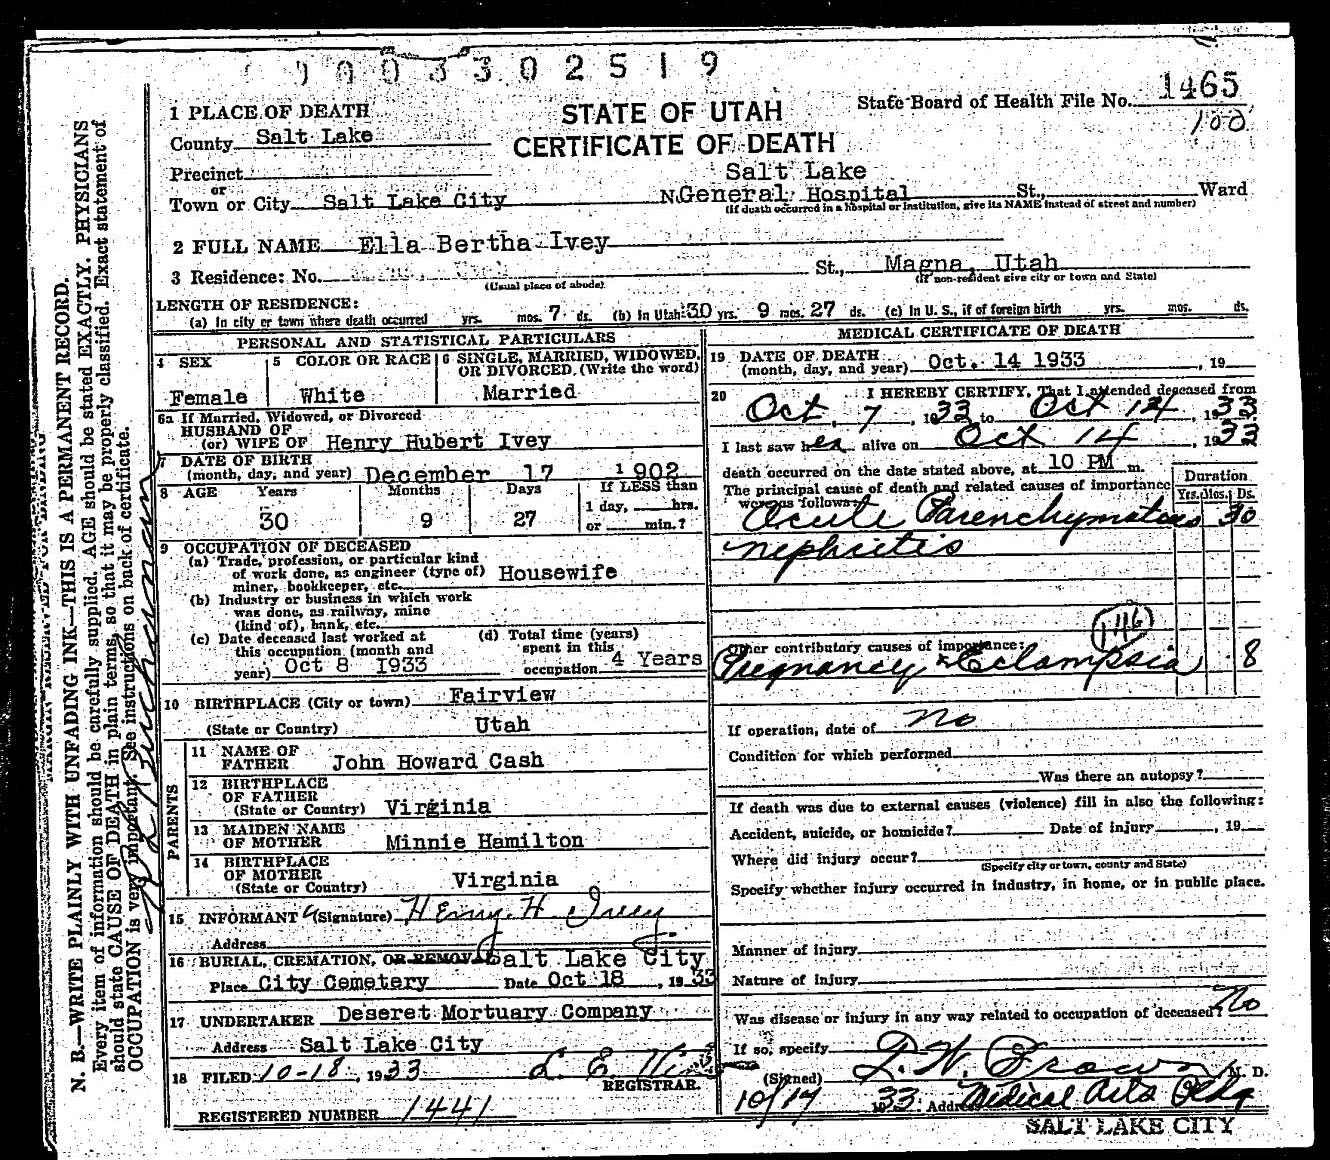 0003302519
1 PLACE OF DEATH
County Salt Lake
Precinct
or
Town or City Salt Lake City
STATE OF UTAH
CERTIFICATE OF DEATH
State Board of Health File No. 1465
100
Salt Lake
No. General Hospital St., Ward
(If death occurred in a hospital or institution, give its NAME instead of street and number)
2 FULL NAME Ella Bertha Ivey
3 Residence: No. St., Magna, Utah
(Usual place of abode) (If non-resident give city or town and State)
LENGTH OF RESIDENCE:
(a) In city or town where death occurred yrs. mos. 7 ds. (b) in Utah 30 yrs. 9 mos. 27 ds. (c) In U. S., if of foreign birth yrs. mos. ds.
PERSONAL AND STATISTICAL PARTICULARS
4 SEX
Female
5 COLOR OR RACE
White
6 SINGLE, MARRIED, WIDOWED, OR DIVORCED. (Write the word)
Married
6a If Married, Widowed, or Divorced
HUSBAND OF
(or) WIFE OF Henry Hubert Ivey
7 DATE OF BIRTH
(month, day, and year) December 17 1902
8 AGE Years Months Days If LESS than
1 day, hrs.
30 9 27 or min.?
9 OCCUPATION OF DECEASED
(a) Trade, profession, or particular kind
of work done, as engineer (type of)
miner, bookkeeper, etc. Housewife
(b) Industry or business in which work
was done, as railway, mine
(kind of), bank, etc.
(c) Date deceased last worked at
this occupation (month and
year) Oct 8 1933
(d) Total time (years)
spent in this
occupation 4 Years
10 BIRTHPLACE (City or town) Fairview
(State or Country) Utah
PARENTS
11 NAME OF
FATHER John Howard Cash
12 BIRTHPLACE
OF FATHER
(State or Country) Virginia
13 MAIDEN NAME
OF MOTHER Minnie Hamilton
14 BIRTHPLACE
OF MOTHER
(State or Country) Virginia
15 INFORMANT (Signature) Henry H Ivey
Address
16 BURIAL, CREMATION, OR REMOVAL Salt Lake City
Place City Cemetery Date Oct 18, 1933
17 UNDERTAKER Deseret Mortuary Company
Address Salt Lake City
18 FILED 10-18, 1933 L. E.
REGISTRAR.
REGISTERED NUMBER 1441
MEDICAL CERTIFICATE OF DEATH
19 DATE OF DEATH
(month, day, and year) Oct. 14 1933, 19
20 I HEREBY CERTIFY, That I attended deceased from
Oct. 7, 1933 to Oct 14, 1933
I last saw her alive on Oct 14, 1933
death occurred on the date stated above, at 10 PM m.
The principal cause of death and related causes of importance
were as follows:
Duration
Yrs. Mos. Ds.
Acute Parenchymatous 30
nephritis
116
Other contributory causes of importance:
Pregnancy & Eclampsia 8
If operation, date of no
Condition for which performed
Was there an autopsy?
If death was due to external causes (violence) fill in also the following:
Accident, suicide, or homicide? Date of injury, 19
Where did injury occur?
(Specify city or town, county and State)
Specify whether injury occurred in industry, in home, or in public place.
Manner of injury
Nature of injury
Was disease or injury in any way related to occupation of deceased? No
If so, specify
(Signed) M. D.
10/17 1933 Address Medical Arts Bldg
SALT LAKE CITY
N. B.—WRITE PLAINLY WITH UNFADING INK—THIS IS A PERMANENT RECORD.
Every item of information should be carefully supplied. AGE should be stated EXACTLY. PHYSICIANS
should state CAUSE OF DEATH in plain terms, so that it may be properly classified. Exact statement of
OCCUPATION is very important. See instructions on back of certificate.